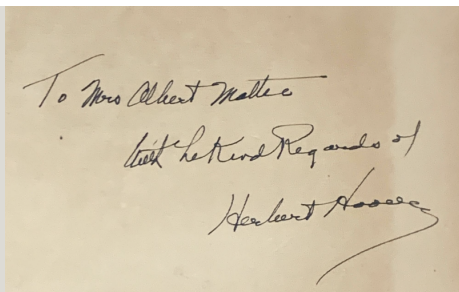 To Mrs Albert Mattei
With the Kind Regards of
Herbert Hoover